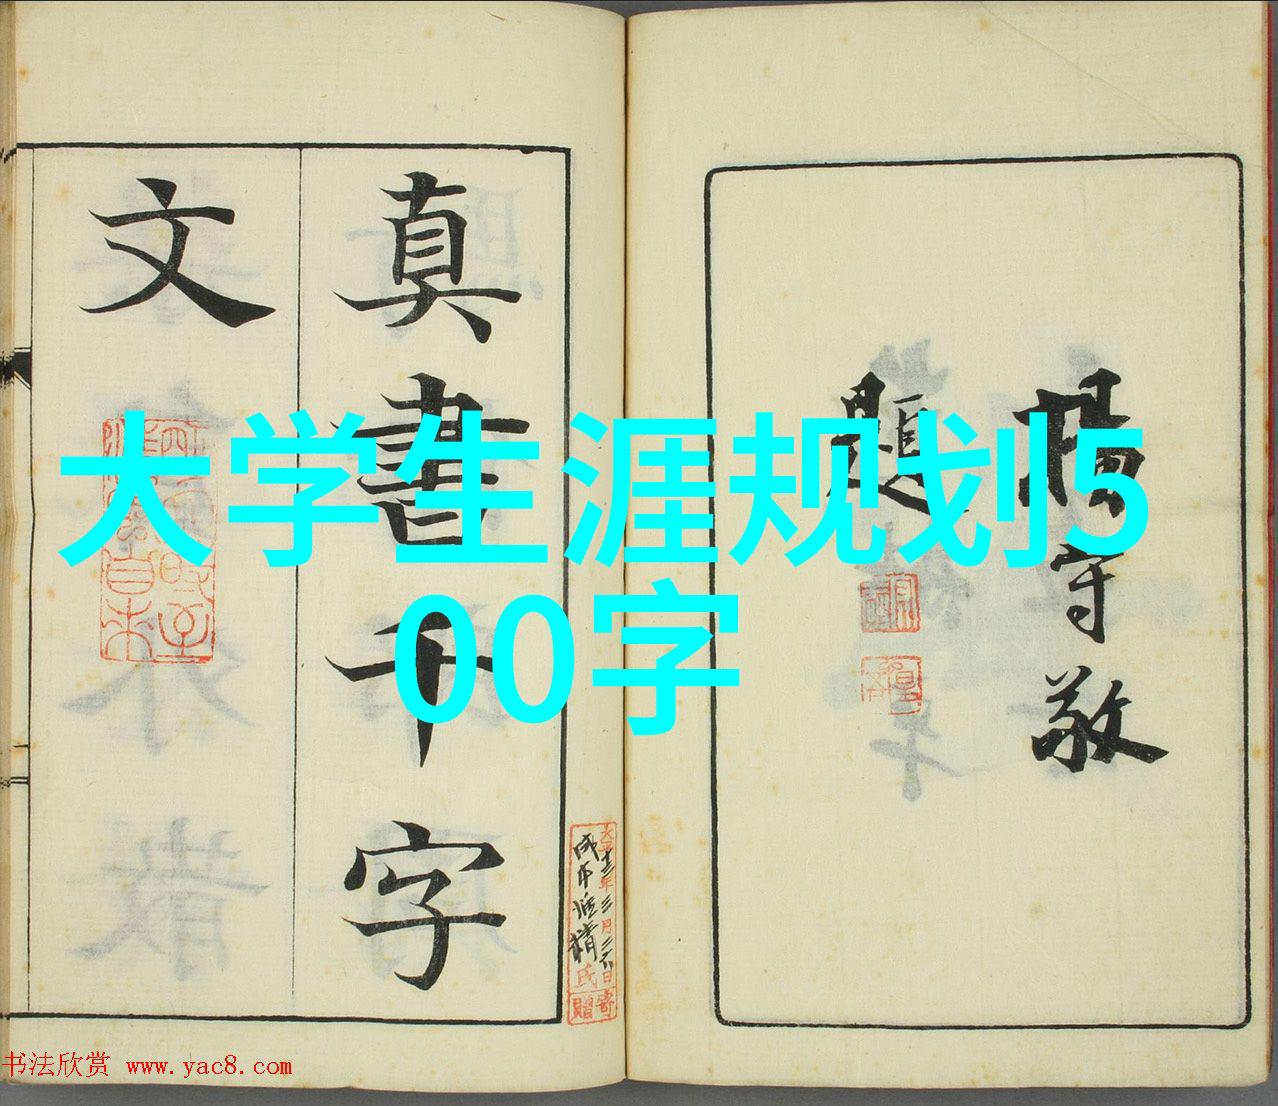 大学生涯规划5
00字
真書千字
文
楊守敬
題
書法欣赏 www.yac8.com